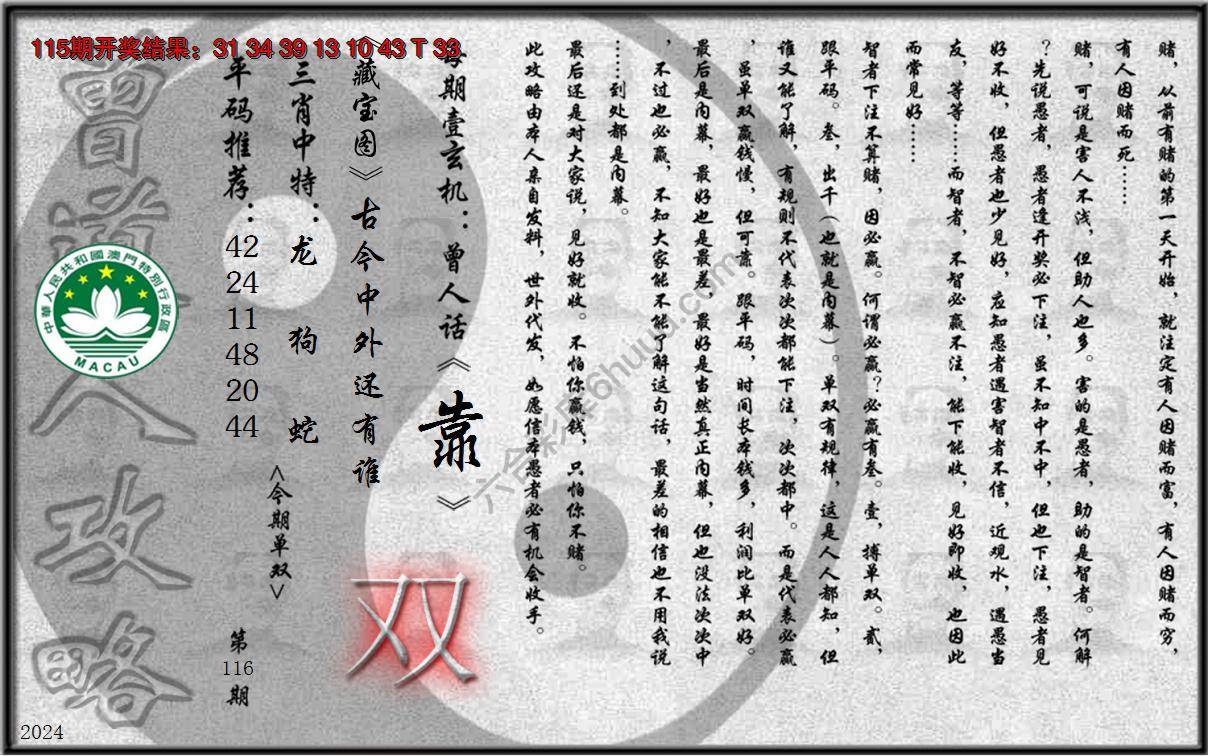 115期开奖结果：31 34 39 13 10 43 T 33
赌，从前有赌的第一天开始，就注定有人因赌而富，有人因赌而穷，
有人因赌而死……
赌，可说是害人不浅，但助人也多。害的是愚者，助的是智者。何解
？先说愚者，愚者逢开奖必下注，虽不知中不中，但也下注，愚者见
好不收，但愚者也少见好，应知愚者遇害智者不信，近观水，遇愚当
友，等等……而智者，不智必赢不注，能下能收，见好即收，也因此
而常见好……
智者下注不算赌，因必赢。何谓必赢？必赢有叁。壹，搏单双。贰，
跟平码。叁，出千（也就是内幕）。单双有规律，这是人人都知，但
谁又能了解，有规则不代表次次都能下注，次次都中。而是代表必赢
，虽单双赢钱慢，但可靠。跟平码，时间长本钱多，利润比单双好。
最后是内幕，最好也是最差，最好是当然真正内幕，但也没法次次中
，不过也必赢，不知大家能不能了解这句话，最差的相信也不用我说
……到处都是内幕。
最后还是对大家说，见好就收。不怕你赢钱，只怕你不赌。
此攻略由本人亲自发料，世外代发，如愿信本愚者必有机会收手。
每期壹玄机：曾人话《靠》
《藏宝图》古今中外还有谁
双
三肖中特：龙 狗 蛇
<今期单双>
平码推荐：42 24 11 48 20 44
第116期
曾道人攻略
中華人民共和國澳門特別行政區
MACAU
2024
六合彩库6huuu.com